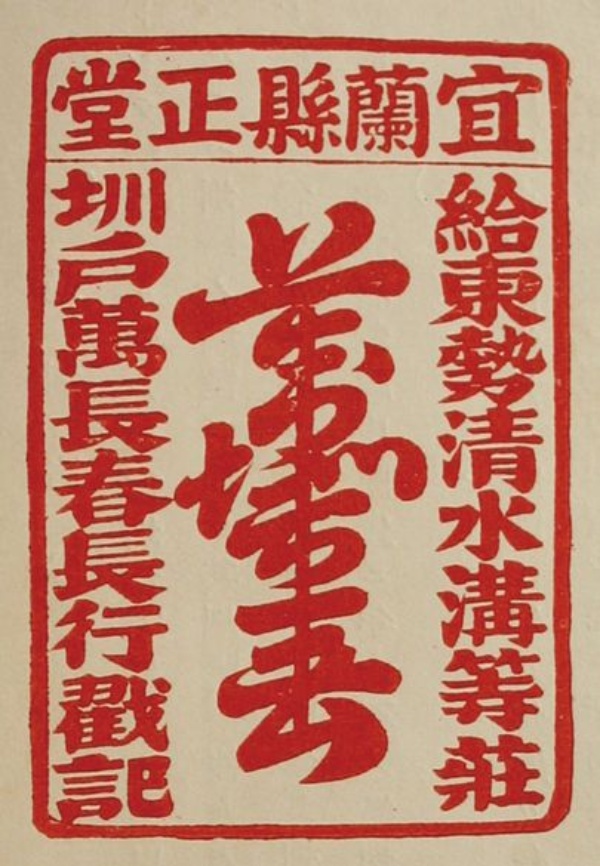 宜蘭縣正堂
給東勢清水溝等莊
圳戶萬長春長行戳記